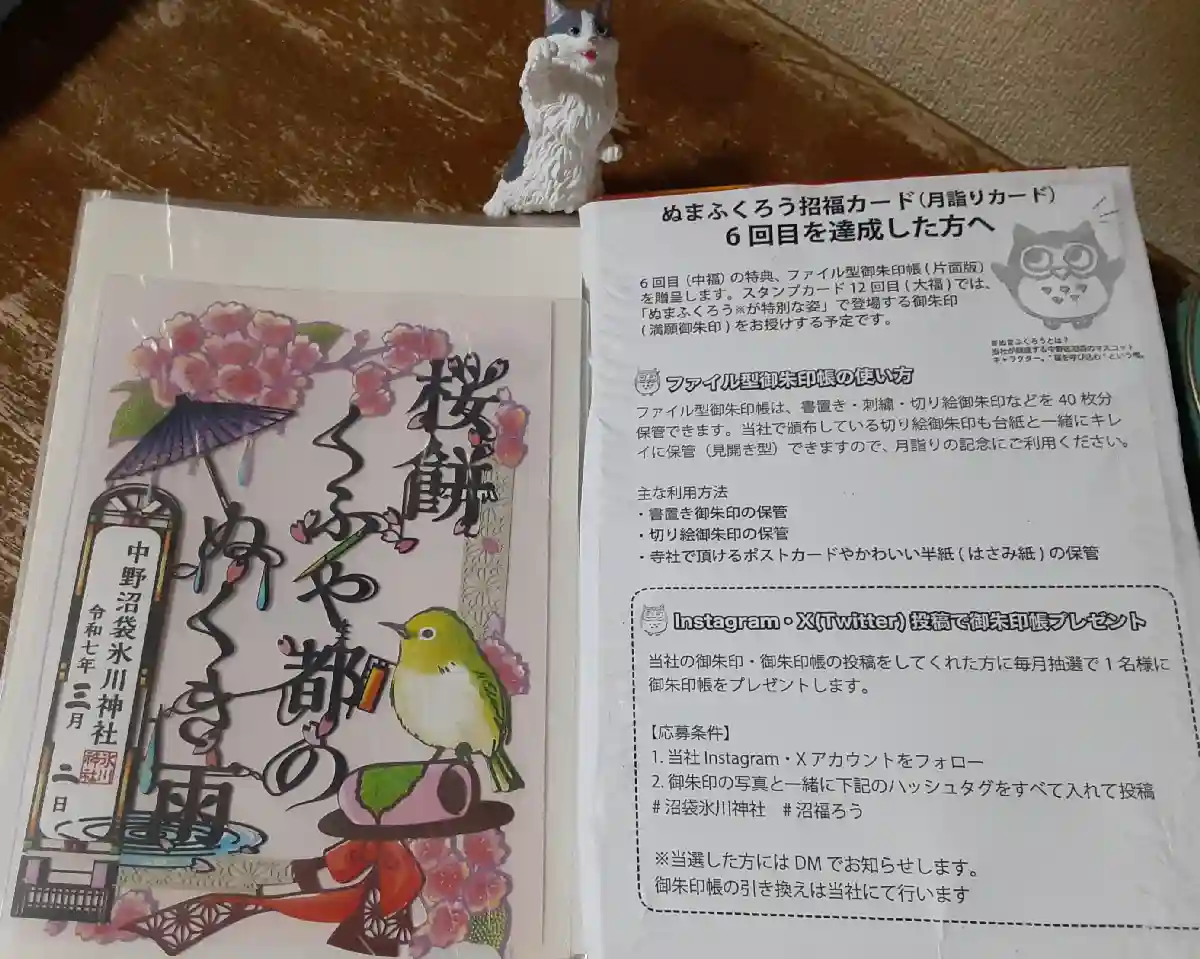 桜餅
くふや都の
ぬくき雨
中野沼袋氷川神社
令和七年三月二日
氷川神社
ぬまふくろう招福カード(月詣りカード)
6回目を達成した方へ
6回目(中福)の特典、ファイル型御朱印帳(片面版)
を贈呈します。スタンプカード12回目(大福)では、
「ぬまふくろう※が特別な姿」で登場する御朱印
(満願御朱印)をお授けする予定です。
※ぬまふくろうとは?
キャラクター。
ファイル型御朱印帳の使い方
ファイル型御朱印帳は、書置き・刺繍・切り絵御朱印などを40枚分
保管できます。当社で頒布している切り絵御朱印も台紙と一緒にキレ
イに保管(見開き型)できますので、月詣りの記念にご利用ください。
主な利用方法
・書置き御朱印の保管
・切り絵御朱印の保管
・寺社で頂けるポストカードやかわいい半紙(はさみ紙)の保管
Instagram・X(Twitter)投稿で御朱印帳プレゼント
当社の御朱印・御朱印帳の投稿をしてくれた方に毎月抽選で1名様に
御朱印帳をプレゼントします。
【応募条件】
1. 当社Instagram・Xアカウントをフォロー
2. 御朱印の写真と一緒に下記のハッシュタグをすべて入れて投稿
#沼袋氷川神社 #沼福ろう
※当選した方にはDMでお知らせします。
御朱印帳の引き換えは当社にて行います